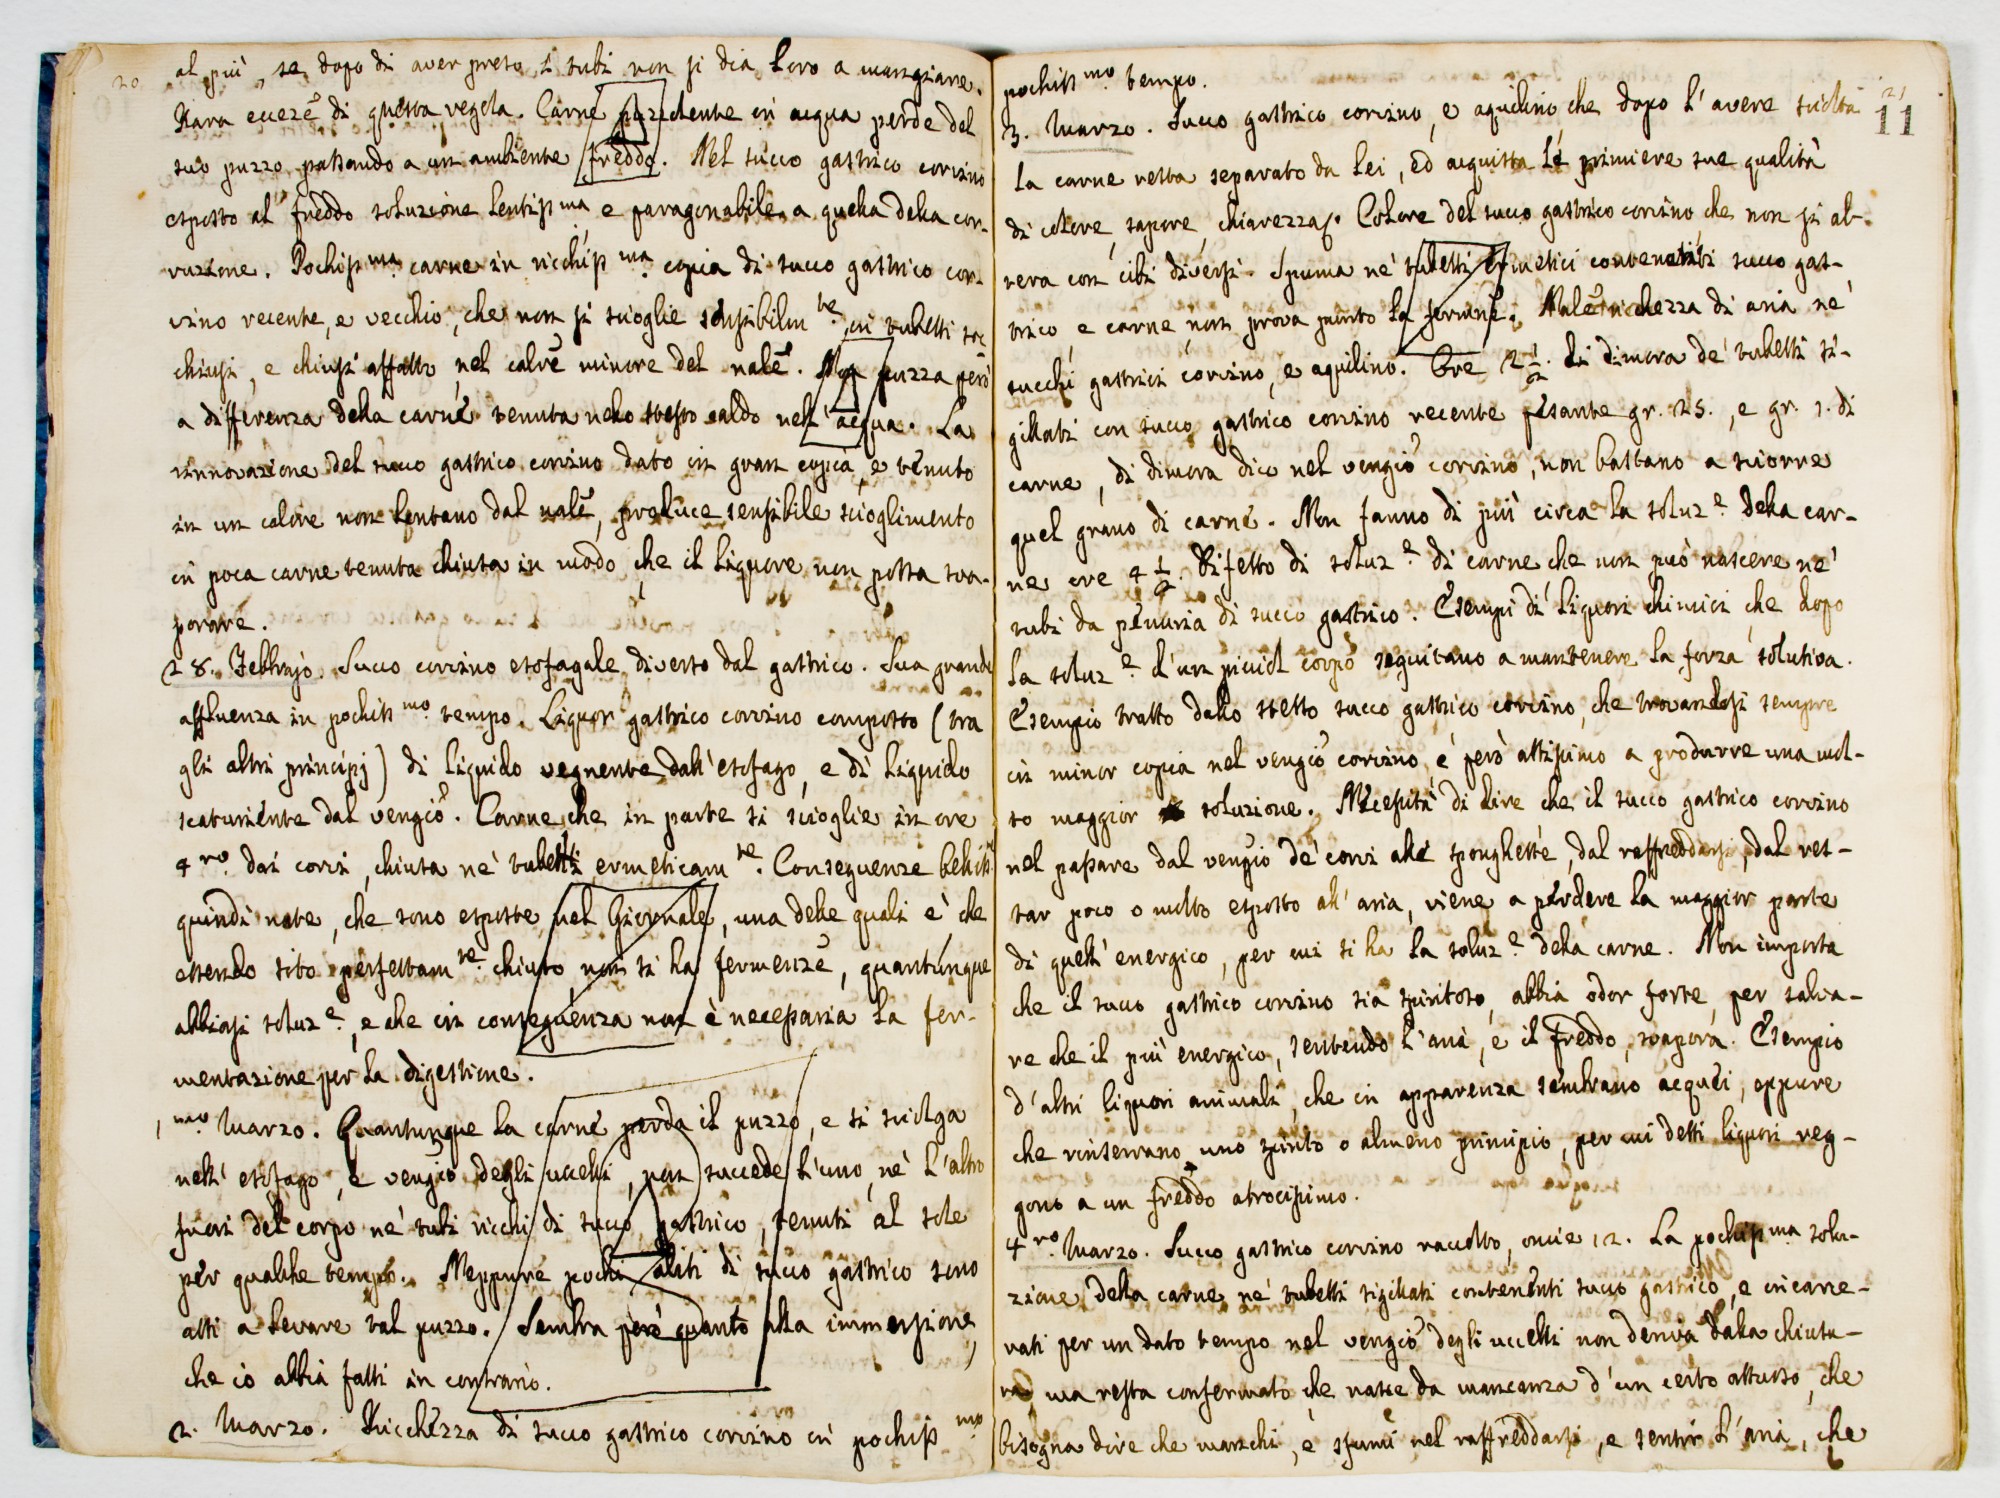 20
al più, se dopo di aver preso i tubi non si dia loro a mangiare.
Rara eccez.e di questa regola. Carne puzzolente in acqua perde del
suo puzzo passando a un ambiente freddo. Nel succo gastrico corvino
esposto al freddo soluzione lentiss.ma, e paragonabile a quella della cor-
ruzione. Pochiss.ma carne in ricchiss.ma copia di succo gastrico cor-
vino recente, e vecchio, che non si scioglie sensibilm.te in tubetti
chiusi, e chiusi affatto nel calore minore del natle. Non puzza però
a differenza della carne tenuta nello stesso caldo nell'acqua. La
rinnovazione del succo gastrico corvino dato in gran copia, e tenuto
in un calore non lontano dal natle, produce sensibile scioglimento
in poca carne tenuta chiusa in modo, che il liquore non possa sva-
porare.
28. Febbrajo. Succo corvino esofagale diverso dal gastrico. Sua grande
affluenza in pochiss.mo tempo. Liquor gastrico corvino composto (tra
gli altri principj) di liquido vegnente dall'esofago, e di liquido
scaturiente dal vengio. Carne che in parte si scioglie in ore
4.ro dai corvi, chiusa ne' tubetti ermeticam.te. Conseguenze belliss.
quindi nate, che sono esposte nel Giornale, una delle quali è, che
essendo sito perfettam.te chiuso, non si ha fermenze, quantunque
abbiasi soluz.e, e che in conseguenza non è necessaria la fer-
mentazione per la digestione.
1.mo Marzo. Quantunque la carne perda il puzzo, e si sciolga
nell'esofago, e vengio degli uccelli, non succede l'uno, nè l'altro
fuori del corpo ne' tubi ricchi di succo gastrico, tenuti al sole
per qualche tempo. Neppure pochi aliti di succo gastrico sono
atti a levare tal puzzo. Sembra però quanto alla immersione,
che io abbia fatti in contrario.
2. Marzo. Ricchezza di succo gastrico corvino in pochiss.mo
21
11
pochiss.mo tempo.
3. Marzo. Succo gastrico corvino, e aquilino, che dopo l'avere sciolta
la carne resta separato da lei, ed acquista le primiere sue qualità
di colore, sapore, chiarezza. Colore del succo gastrico corvino che non si al-
tera con cibi diversi. Spuma ne' tubetti ermetici contenenti succo gas-
trico, e carne, non prova punto la ferme. Nale ricchezza di aria ne'
succhi gastrici corvino, e aquilino. Ore 2 1/2 di dimora de' tubetti si-
gillati con succo gastrico corvino recente pesante gr. 25., e gr. 1. di
carne, di dimora dico nel vengio corvino, non bastano a sciorre
quel grano di carne. Non fanno di più circa la soluz.e della car-
ne ore 4 1/2. Difetto di soluz.e di carne che non può nascere ne'
tubi da penuria di succo gastrico. Esempi di liquori chimici che dopo
la soluz.e d'un picciol corpo seguitano a mantenere la forza solutiva.
Esempio tratto dallo stesso succo gastrico corvino, che trovandosi sempre
in minor copia nel vengio corvino, è però attissimo a produrre una mol-
to maggior soluzione. Necessità di dire che il succo gastrico corvino
nel passare dal vengio de' corvi alle spunghette, dal raffreddarsi, dal res-
tar poco o molto esposto all'aria, viene a perdere la maggior parte
di quell'energico, per cui si ha la soluz.e della carne. Non importa
che il succo gastrico corvino sia spiritoso, abbia odor forte, per salva-
re che il più energico, sentendo l'aria, e il freddo, svapora. Esempio
d'altri liquori animali, che in apparenza sembrano acquei, oppure
che rinserrano uno spirito o almeno principio, per cui detti liquori reg-
gono a un freddo atrocissimo.
4.ro Marzo. Succo gastrico corvino raccolto, oncie 12. La pochiss.ma solu-
zione della carne ne' tubetti sigillati contenenti succo gastrico, e incarce-
rati per un dato tempo nel vengio degli uccelli non deriva dalla chiusu-
ra, ma resta confermato, che nasce da mancanza d'un certo attuoso, che
bisogna dire che manchi, e sfumi nel raffreddarsi, e sentir l'aria, che